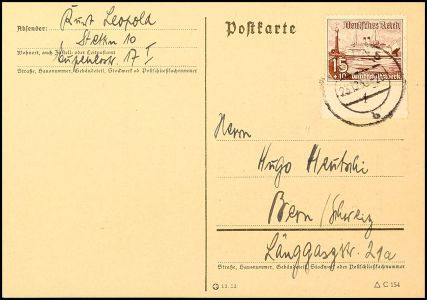 Absender: Kurt Leopold
Stettin 10
Wohnort, auch Zustell- oder Leitpostamt
17 I
Straße, Hausnummer, Gebäudeteil, Stockwerk od. Postschließfachnummer
Postkarte
Deutsches Reich
15
+10
Winterhilfswerk
Herrn
Hugo
Bern/Schweiz
Länggassstr. 21a
Straße, Hausnummer, Gebäudeteil, Stockwerk oder Postschließfachnummer
C 154